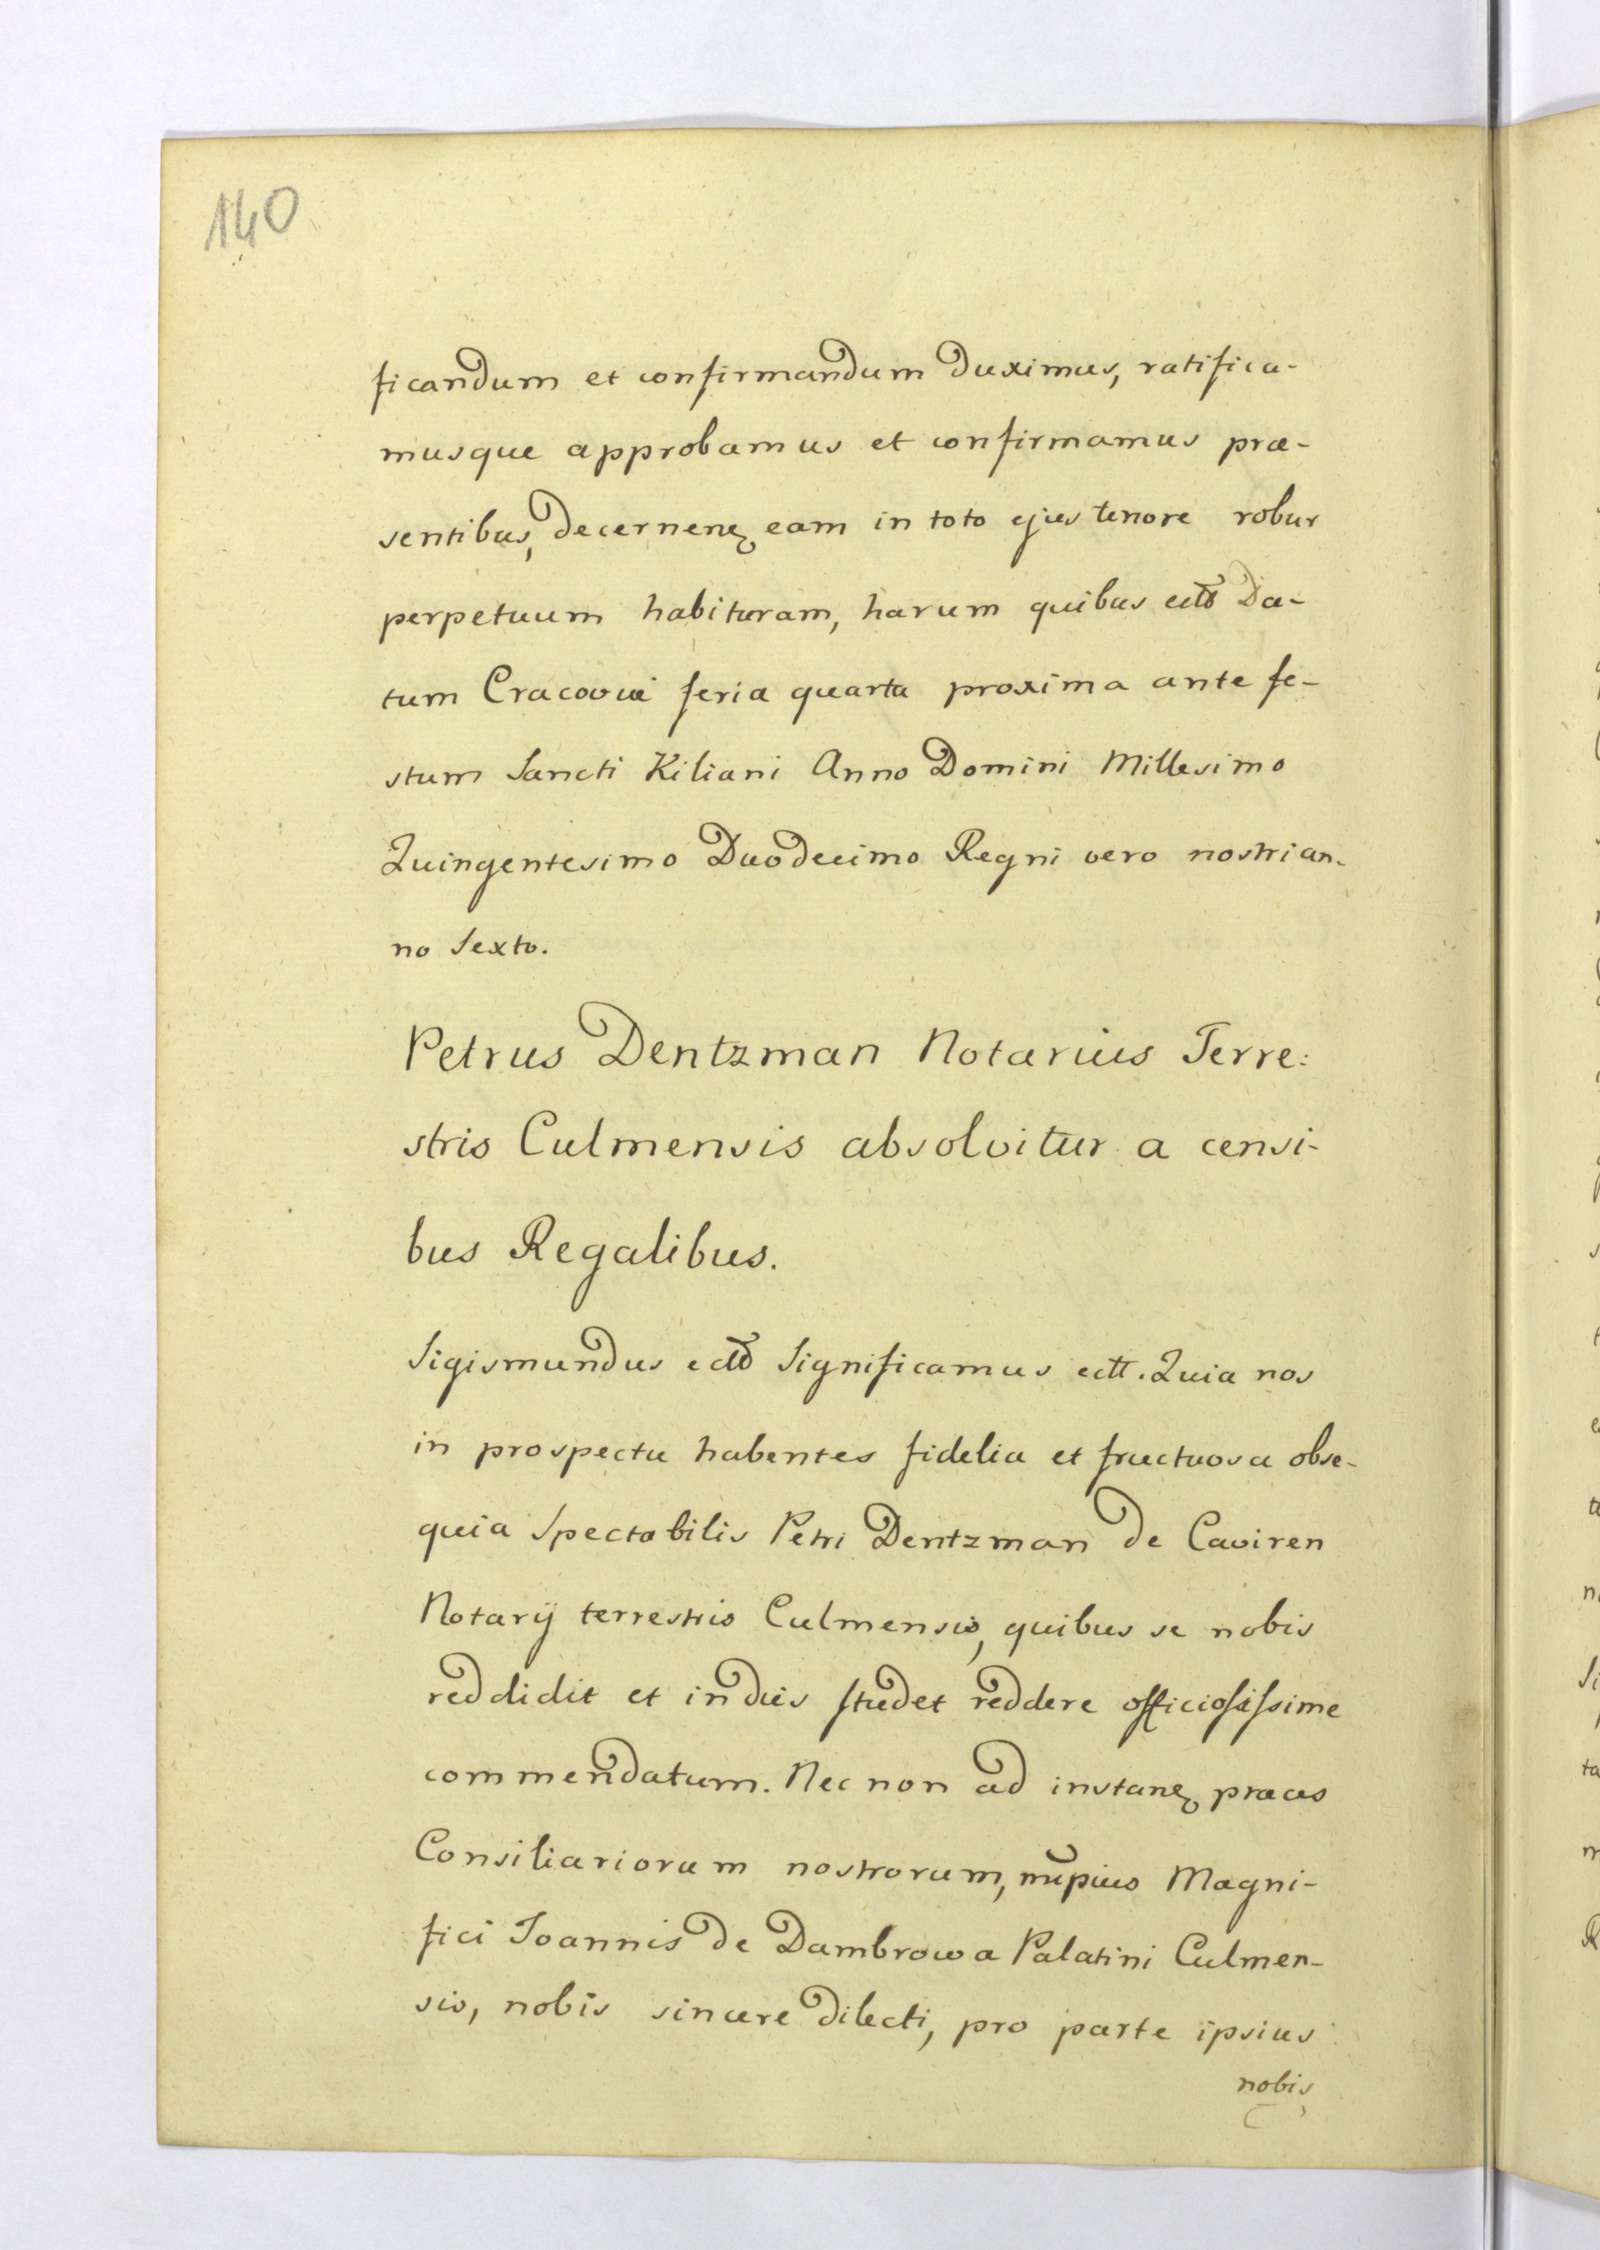 140
ficandum et confirmandum duximus, ratifica-
musque approbamus et confirmamus præ-
sentibus, decernen eam in toto ejus tenore robur
perpetuum habituram, harum quibus ectō Da-
tum Cracoviæ feria quarta proxima ante fe-
stum Sancti Kiliani Anno Domini Millesimo
Quingentesimo Duodecimo Regni vero nostri an-
no Sexto.
Petrus Dentzman Notarius Terre:
stris Culmensis absolvitur a censi-
bus Regalibus.
Sigismundus ectō Significamus ectt. Quia nos
in prospectu habentes fidelia et fructuosa obse-
quia Spectabilis Petri Dentzman de Caviren
Notarij terrestris Culmensis, quibus se nobis
reddidit et in dies studet reddere officiosissime
commendatum. Nec non ad instanz præces
Consiliariorum nostrorum, Magni-
fici Joannis de Dambrowa Palatini Culmen-
sis, nobis sincere dilecti, pro parte ipsius
nobis